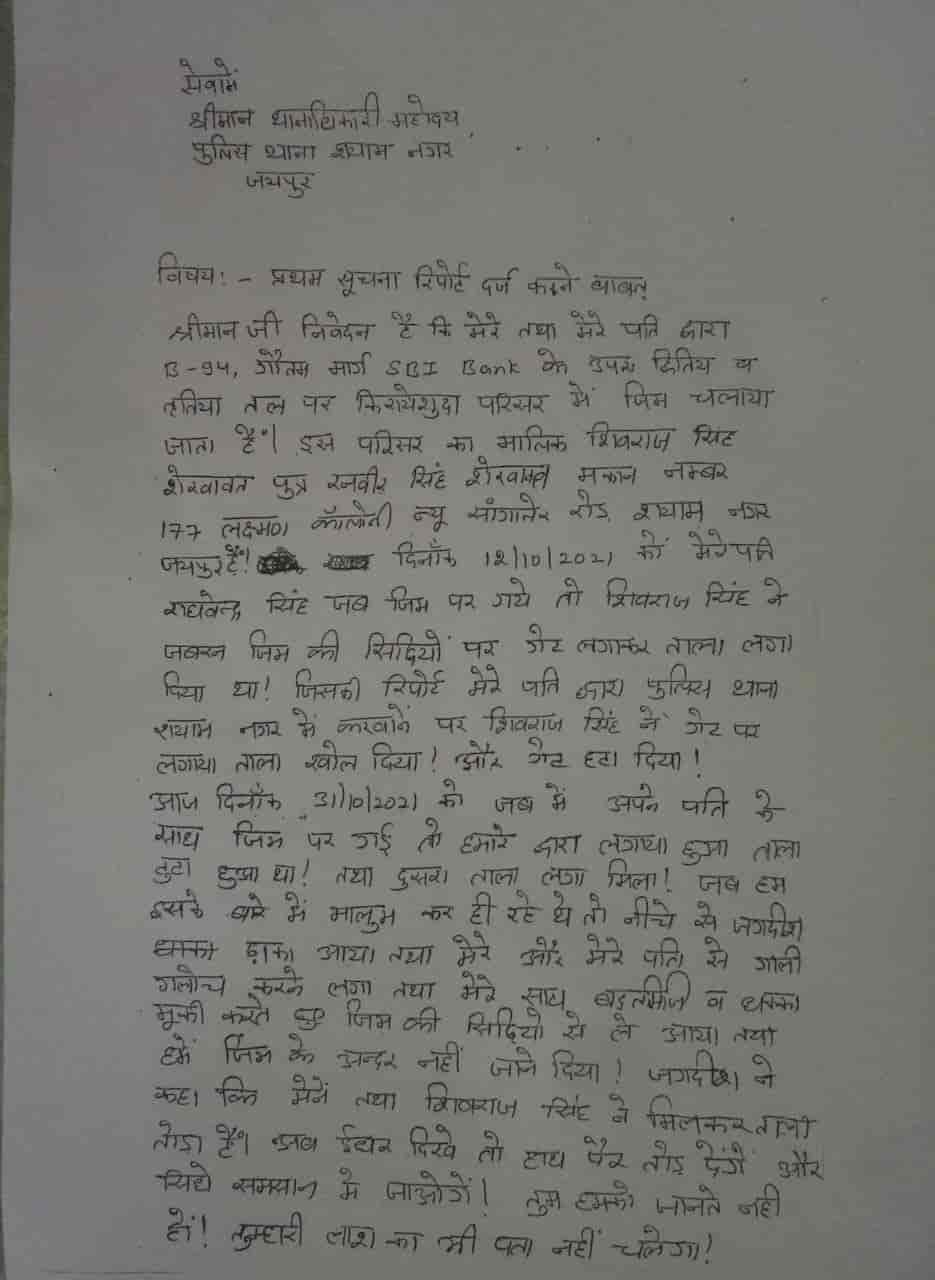 सेवामें
श्रीमान थानाधिकारी महोदय
पुलिस थाना श्याम नगर
जयपुर
विषय:- प्रथम सूचना रिपोर्ट दर्ज करने बाबत्
श्रीमान जी निवेदन है कि मेरे तथा मेरे पति द्वारा
B-94, गौतम मार्ग SBI Bank के उपर द्वितिय व
तृतिया तल पर किरायेशुदा परिसर में जिम चलाया
जाता है। इस परिसर का मालिक शिवराज सिंह
शेखावत पुत्र रनवीर सिंह शेखावत मकान नम्बर
177 लक्ष्मण कॉलोनी न्यू सांगानेर रोड़ श्याम नगर
जयपुर है! दिनाँक 12/10/2021 को मेरे पति
राघवेन्द्र सिंह जब जिम पर गये तो शिवराज सिंह ने
जबरन जिम की सिढियों पर गेट लगाकर ताला लगा
दिया था! जिसकी रिपोर्ट मेरे पति द्वारा पुलिस थाना
श्याम नगर में करवाने पर शिवराज सिंह ने गेट पर
लगाया ताला खोल दिया! और गेट हटा दिया!
आज दिनाँक 31/10/2021 को जब में अपने पति के
साथ जिम पर गई तो हमारे द्वारा लगाया हुआ ताला
टुटा हुआ था! तथा दुसरा ताला लगा मिला! जब हम
इसके बारे में मालुम कर ही रहे थे तो नीचे से जगदीश
ढाका आया तथा मेरे और मेरे पति से गाली
गलोच करने लगा तथा मेरे साथ बद्तमिजि व धक्का
मूक्की करते हुए जिम की सिढियो से ले आया तथा
हमें जिम के अन्दर नहीं जाने दिया! जगदीश ने
कहा कि मेनें तथा शिवराज सिंह ने मिलकर ताला
तोडा है। अब ईधर दिखे तो हाथ पैर तोड़ देंगें और
सिधे समसान मे जाओगें! तुम हमको जानते नही
हों! तुम्हारी लाश का भी पता नहीं चलेगा!